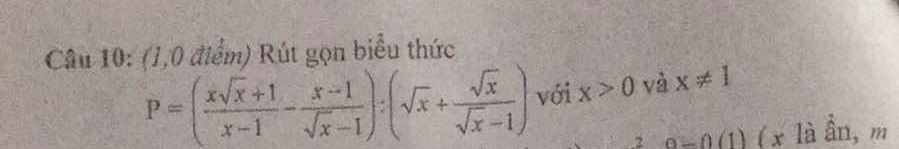 Câu 10: (1,0 điểm) Rút gọn biểu thức
P = ( (x√x + 1)/(x − 1) − (x − 1)/(√x − 1) ) : ( √x + √x/(√x − 1) ) với x > 0 và x ≠ 1
(1) (x là ẩn, m